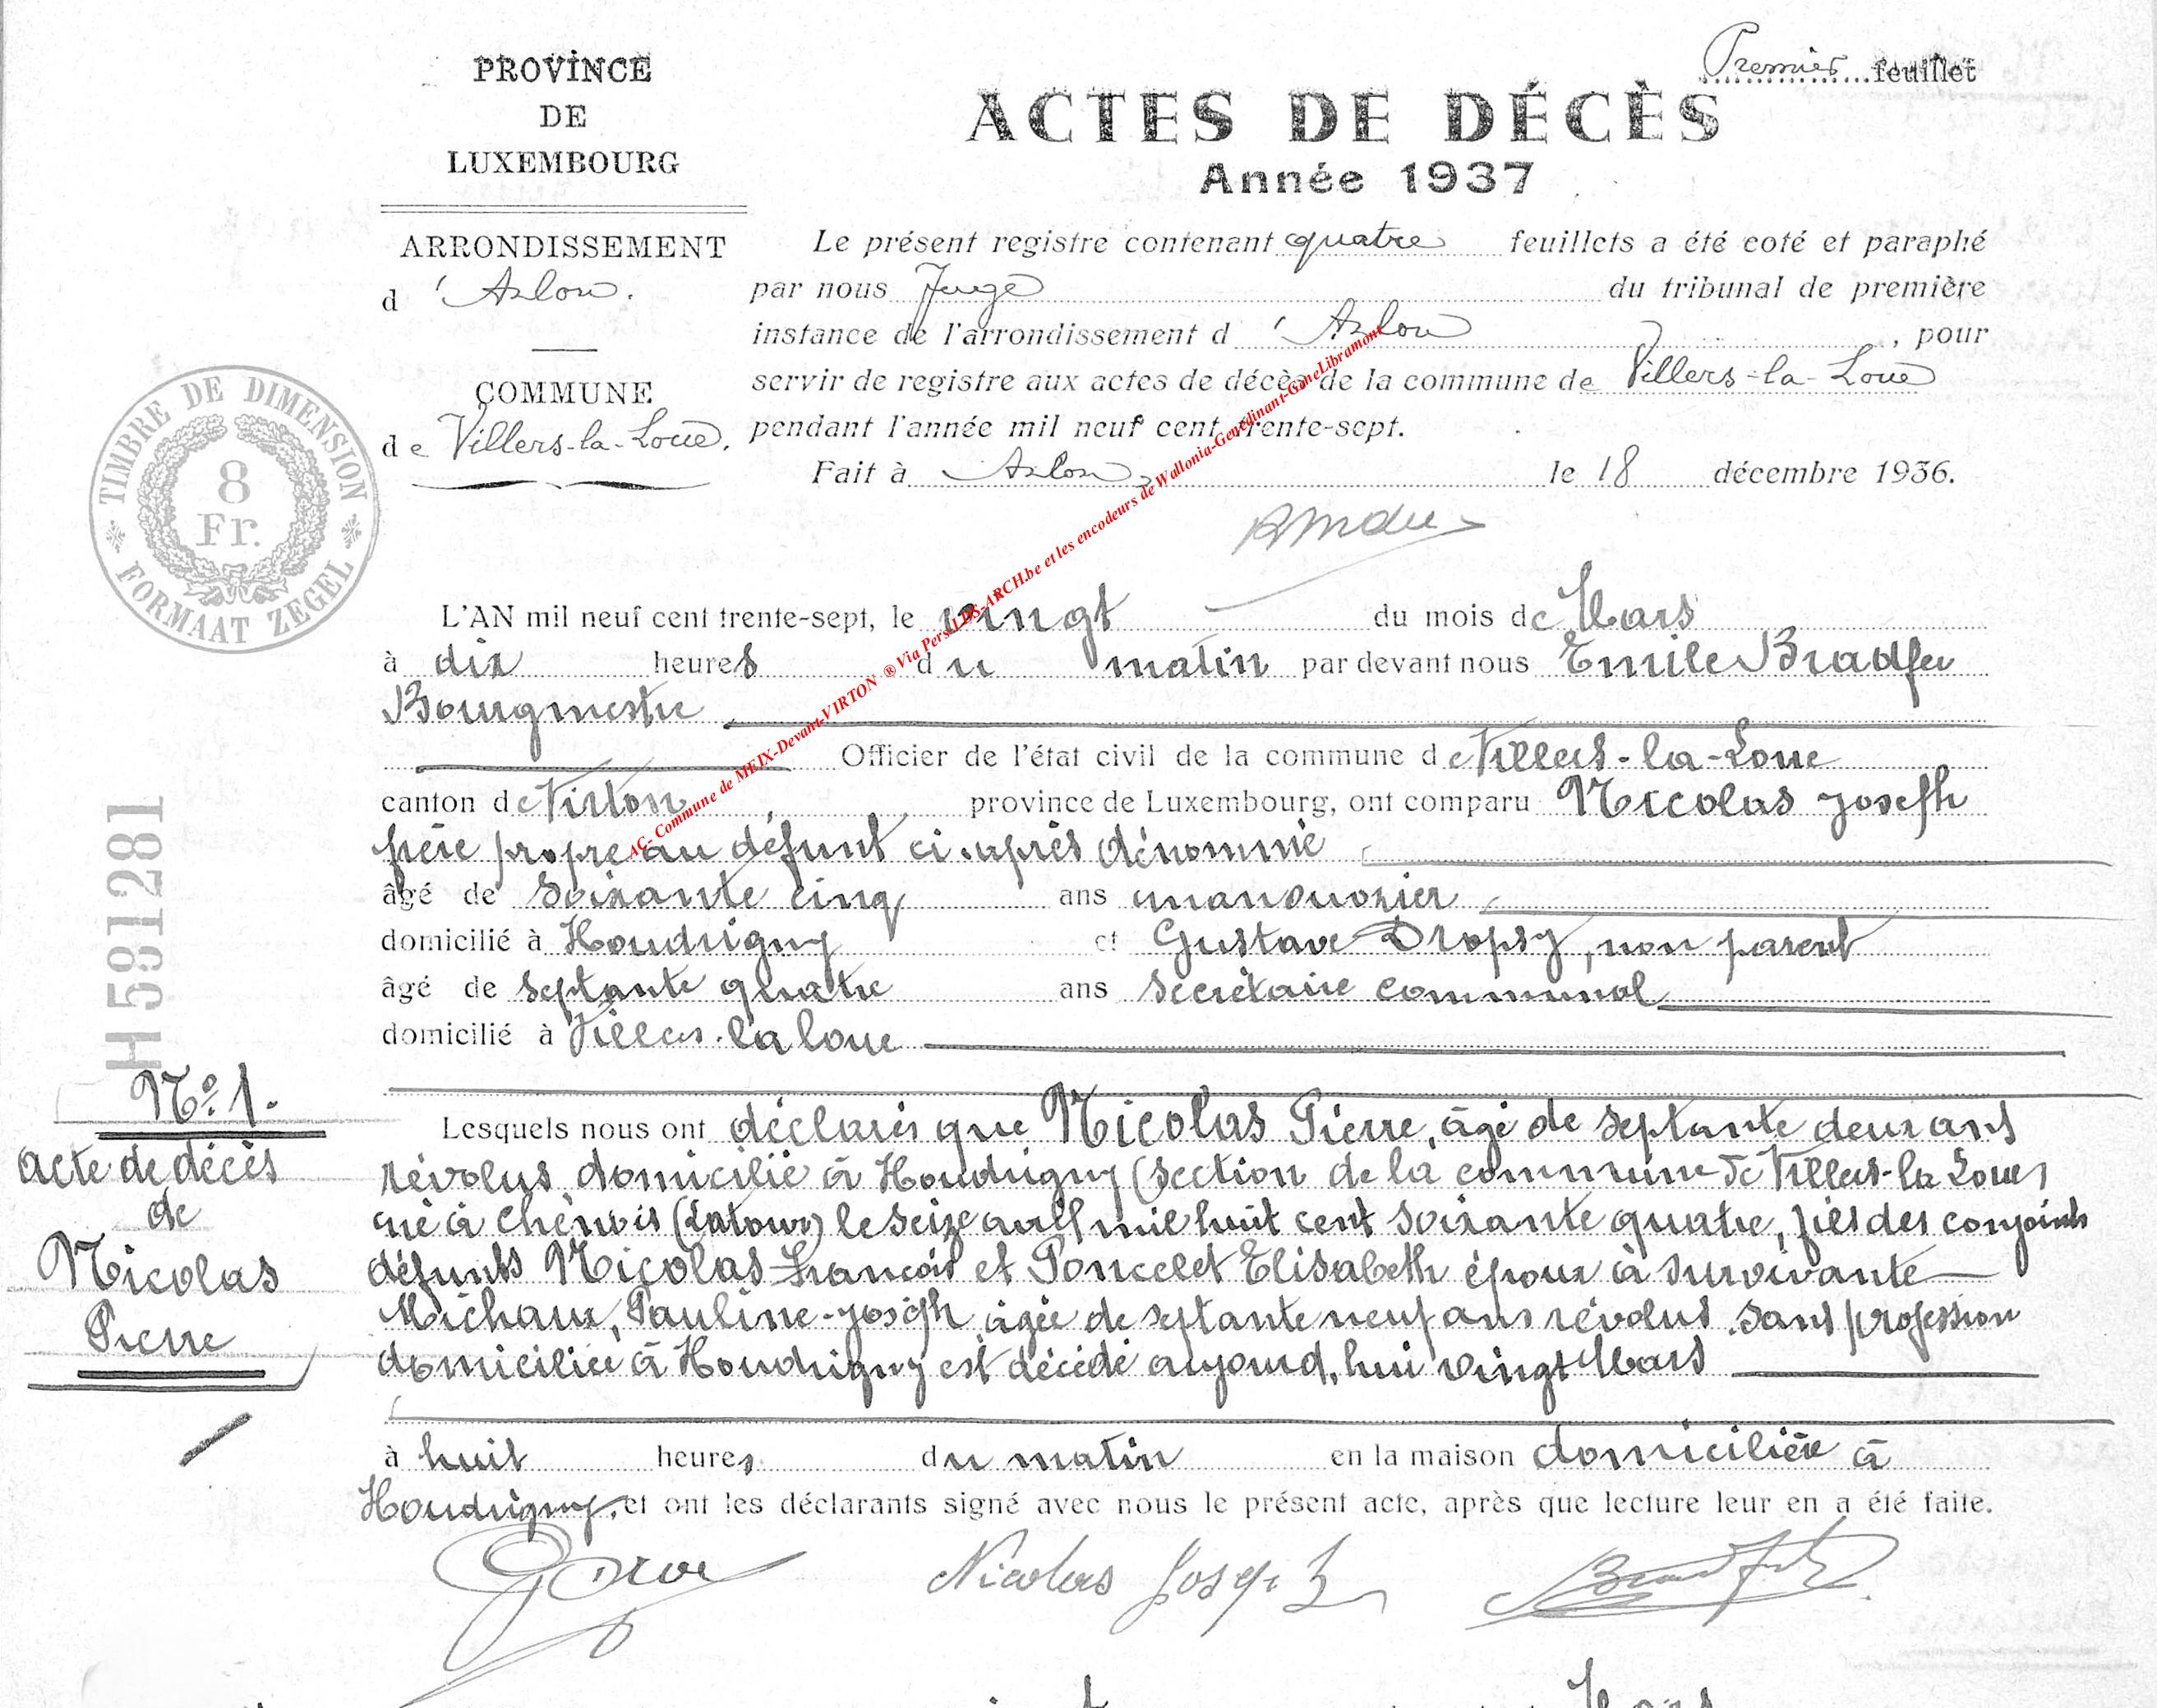 Premier feuillet
PROVINCE
DE
LUXEMBOURG
ACTES DE DÉCÈS
Année 1937
ARRONDISSEMENT
d'Arlon.
COMMUNE
de Villers-la-Loue.
Le présent registre contenant quatre feuillets a été coté et paraphé
par nous Juge du tribunal de première
instance de l'arrondissement d'Arlon, pour
servir de registre aux actes de décès de la commune de Villers-la-Loue
pendant l'année mil neuf cent trente-sept.
Fait à Arlon, le 18 décembre 1936.
TIMBRE DE DIMENSION
8
Fr.
FORMAAT ZEGEL
H581281
AC- Commune de MEIX-Devant-VIRTON ® Via Pers-LDS-ARCH.be et les encodeurs de Wallonia-Genedinant-GeneLibramont
L'AN mil neuf cent trente-sept, le vingt du mois de Mars
à dix heures du matin par devant nous Emile Bradfer
Bourgmestre
Officier de l'état civil de la commune de Villers-la-Loue
canton de Virton province de Luxembourg, ont comparu Nicolas Joseph
frère propre au défunt ci-après dénommé
âgé de soixante cinq ans manouvrier
domicilié à Houdrigny et Gustave Dropsy, non parent
âgé de septante quatre ans secrétaire communal
domicilié à Villers-la loue
N° 1.
Acte de décès
de
Nicolas
Pierre
Lesquels nous ont déclarés que Nicolas Pierre, âgé de septante deux ans
révolus, domicilié à Houdrigny (section de la commune de Villers-la Loue)
né à Chenois (Latour) le seize avril mil huit cent soixante quatre, fils des conjoints
défunts Nicolas François et Poncelet Elisabeth époux à survivante
Michaux, Pauline-Joseph, âgée de septante neuf ans révolus, sans profession
domiciliée à Houdrigny est décédé aujourd'hui vingt Mars
à huit heures du matin en la maison domiciliée à
Houdrigny, et ont les déclarants signé avec nous le présent acte, après que lecture leur en a été faite.
Nicolas Joseph
Bradfer